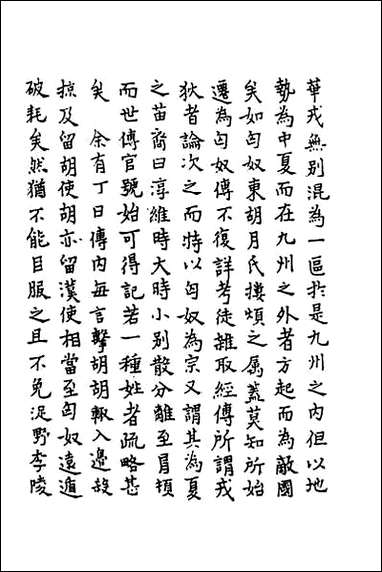 華戎無別混為一區扵是九州之内但以地
勢為中夏而在九州之外者方起而為敵國
矣如匈奴東胡月氏摟煩之属蓋莫知所始
遷為匈奴傳不復詳考徒雜取經傳所謂戎
狄者論次之而特以匈奴為宗又謂其為夏
之苗裔曰淳維時大時小別散分離至冐頓
而世傳官號始可得記若一種姓者疏略甚
矣　余有丁曰傳内毎言擊胡胡輙入邉殺
掠及留胡使胡亦留漢使相當至匈奴遠遁
破耗矣然猶不能臣服之且不免浞野李陵